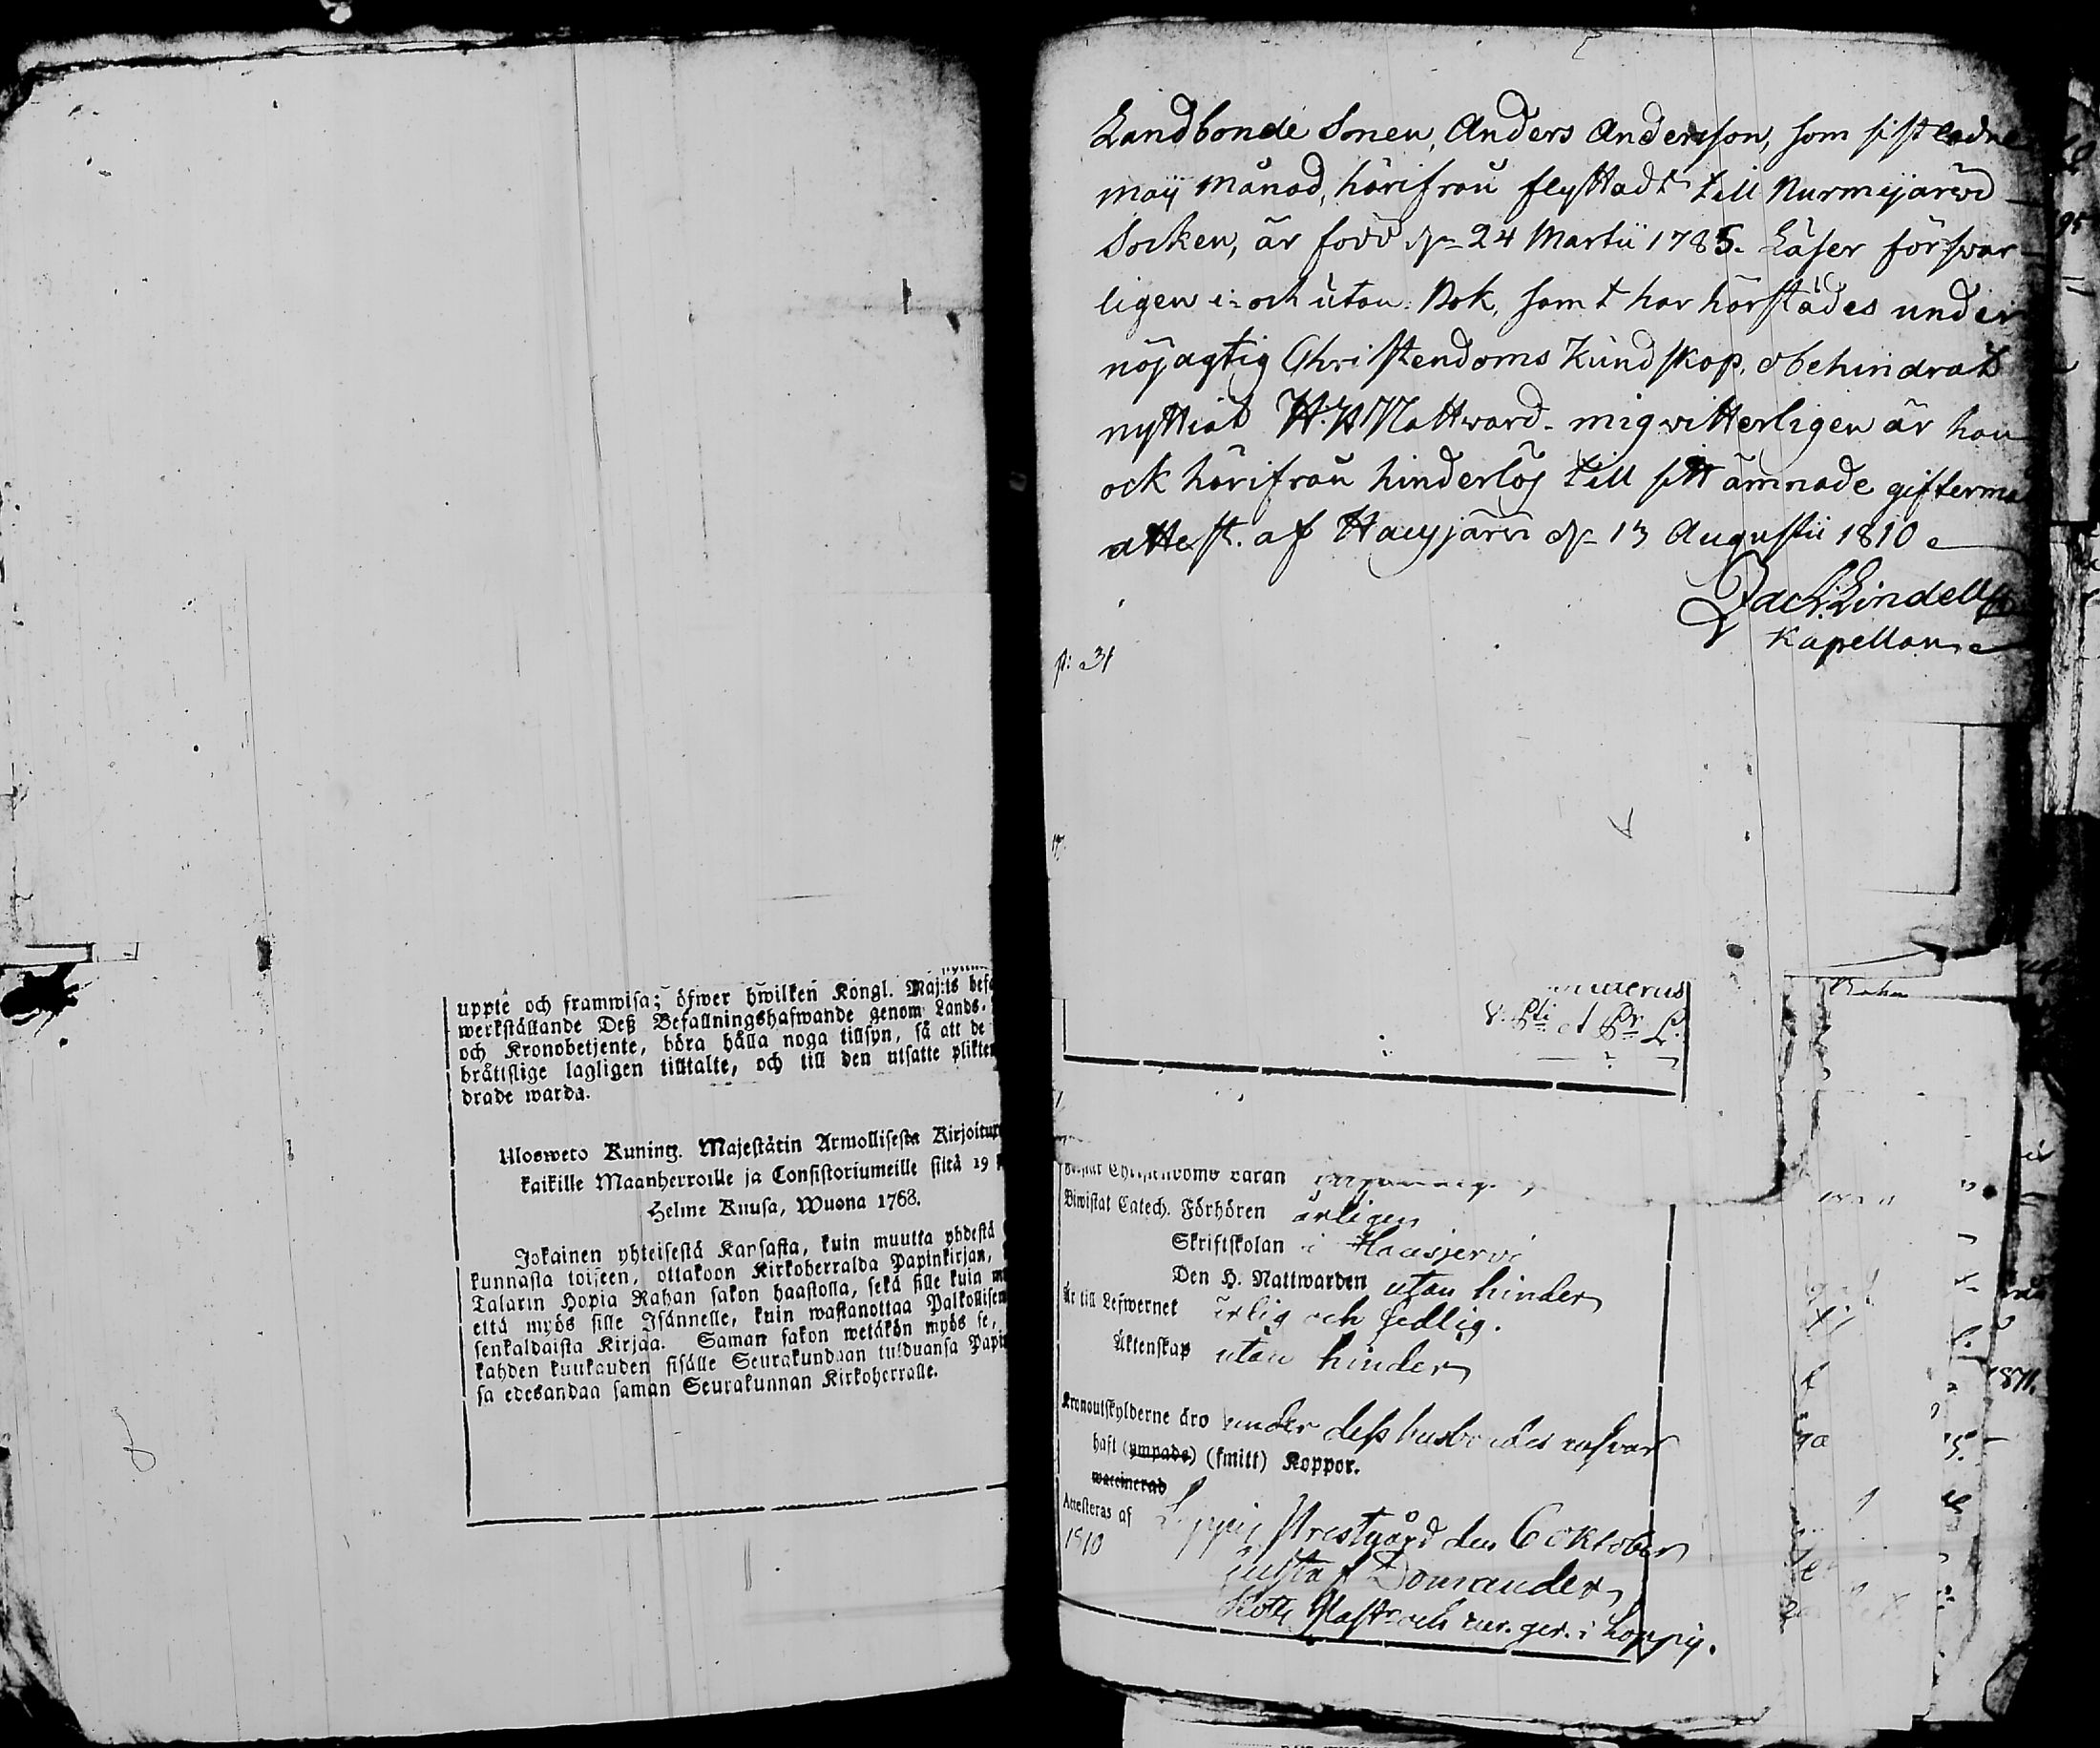 uppte och framwisa; öfwer hwilken Kongl. Maj:ts befa
werkställande Deß Befallningshafwande genom Lands-
och Kronobetjente, böra hålla noga tillsyn, så att de
bråttslige lagligen tilltalte, och till den utsatte plikten
drade warda.
Ulosweto Kuning. Majestätin Armollisesta Kirjoitux
kaikille Maanherroille ja Consistoriumeille siitä 19
Helme Kuusa, Wuona 1768.
Jokainen yhteisestä Kansasta, kuin muutta yhdestä
kunnasta toiseen, ottakoon Kirkoherralda Papinkirjan,
Talarin Hopia Rahan sakon haastolla, sekä sille kuin m
että myös sille Isännelle, kuin wastanottaa Palkollisen
senkaldaista Kirjaa. Saman sakon wetäkön myös se,
kahden kuukauden sisälle Seurakundaan tulduansa Papin
sa edesandaa saman Seurakunnan Kirkoherralle.
Landbonde Sonen, Anders Andersson, som sistledne
maij månad, härifrån flyttadt till Nurmijärwi
Socken, är född dn 24 Martii 1785. Läser förswar
ligen i- och utan Bok, samt har härstädes under
nöjagtig Christendoms Kundskap, obehindrat
nyttiat H.H. Nattward. mig vitterligen är han
ock härifrån hinderlös till sitt ämnade gifterma
attest. af Hausjärvi dn 13 Augustii 1810
Zach. Lindell
Kapellan
p: 31
Christendoms Läran
Biwistat Catech. Förhören årligen
Skriftskolan i Hausjerwi
Den H. Nattwarden utan hinder
Är till Lefwernet ärlig och sedlig.
Äktenskap utan hinder
Kronoutskylderne äro under dess husbondes ansvar
haft (ympade) (smitt) Koppor.
waccinerad
Attesteras af Loppis Prestgård den 6 Oktober
1810
Gustaf Domander
i Loppis.
1871.